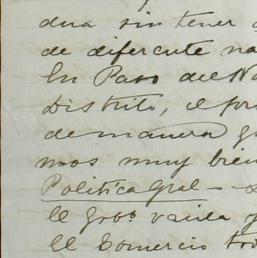 dua sin tener
de diferente na
En Paso del N
Distrito, el pr
de manera g
mos muy bien
Politica Gral -
el Gobº varia y
El Comercio tro